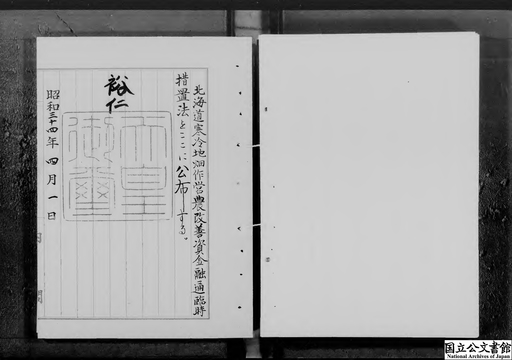 北海道寒冷地畑作営農改善資金融通臨時
措置法をここに公布する。
裕仁
天皇
御璽
昭和三十四年四月一日
国立公文書館
National Archives of Japan